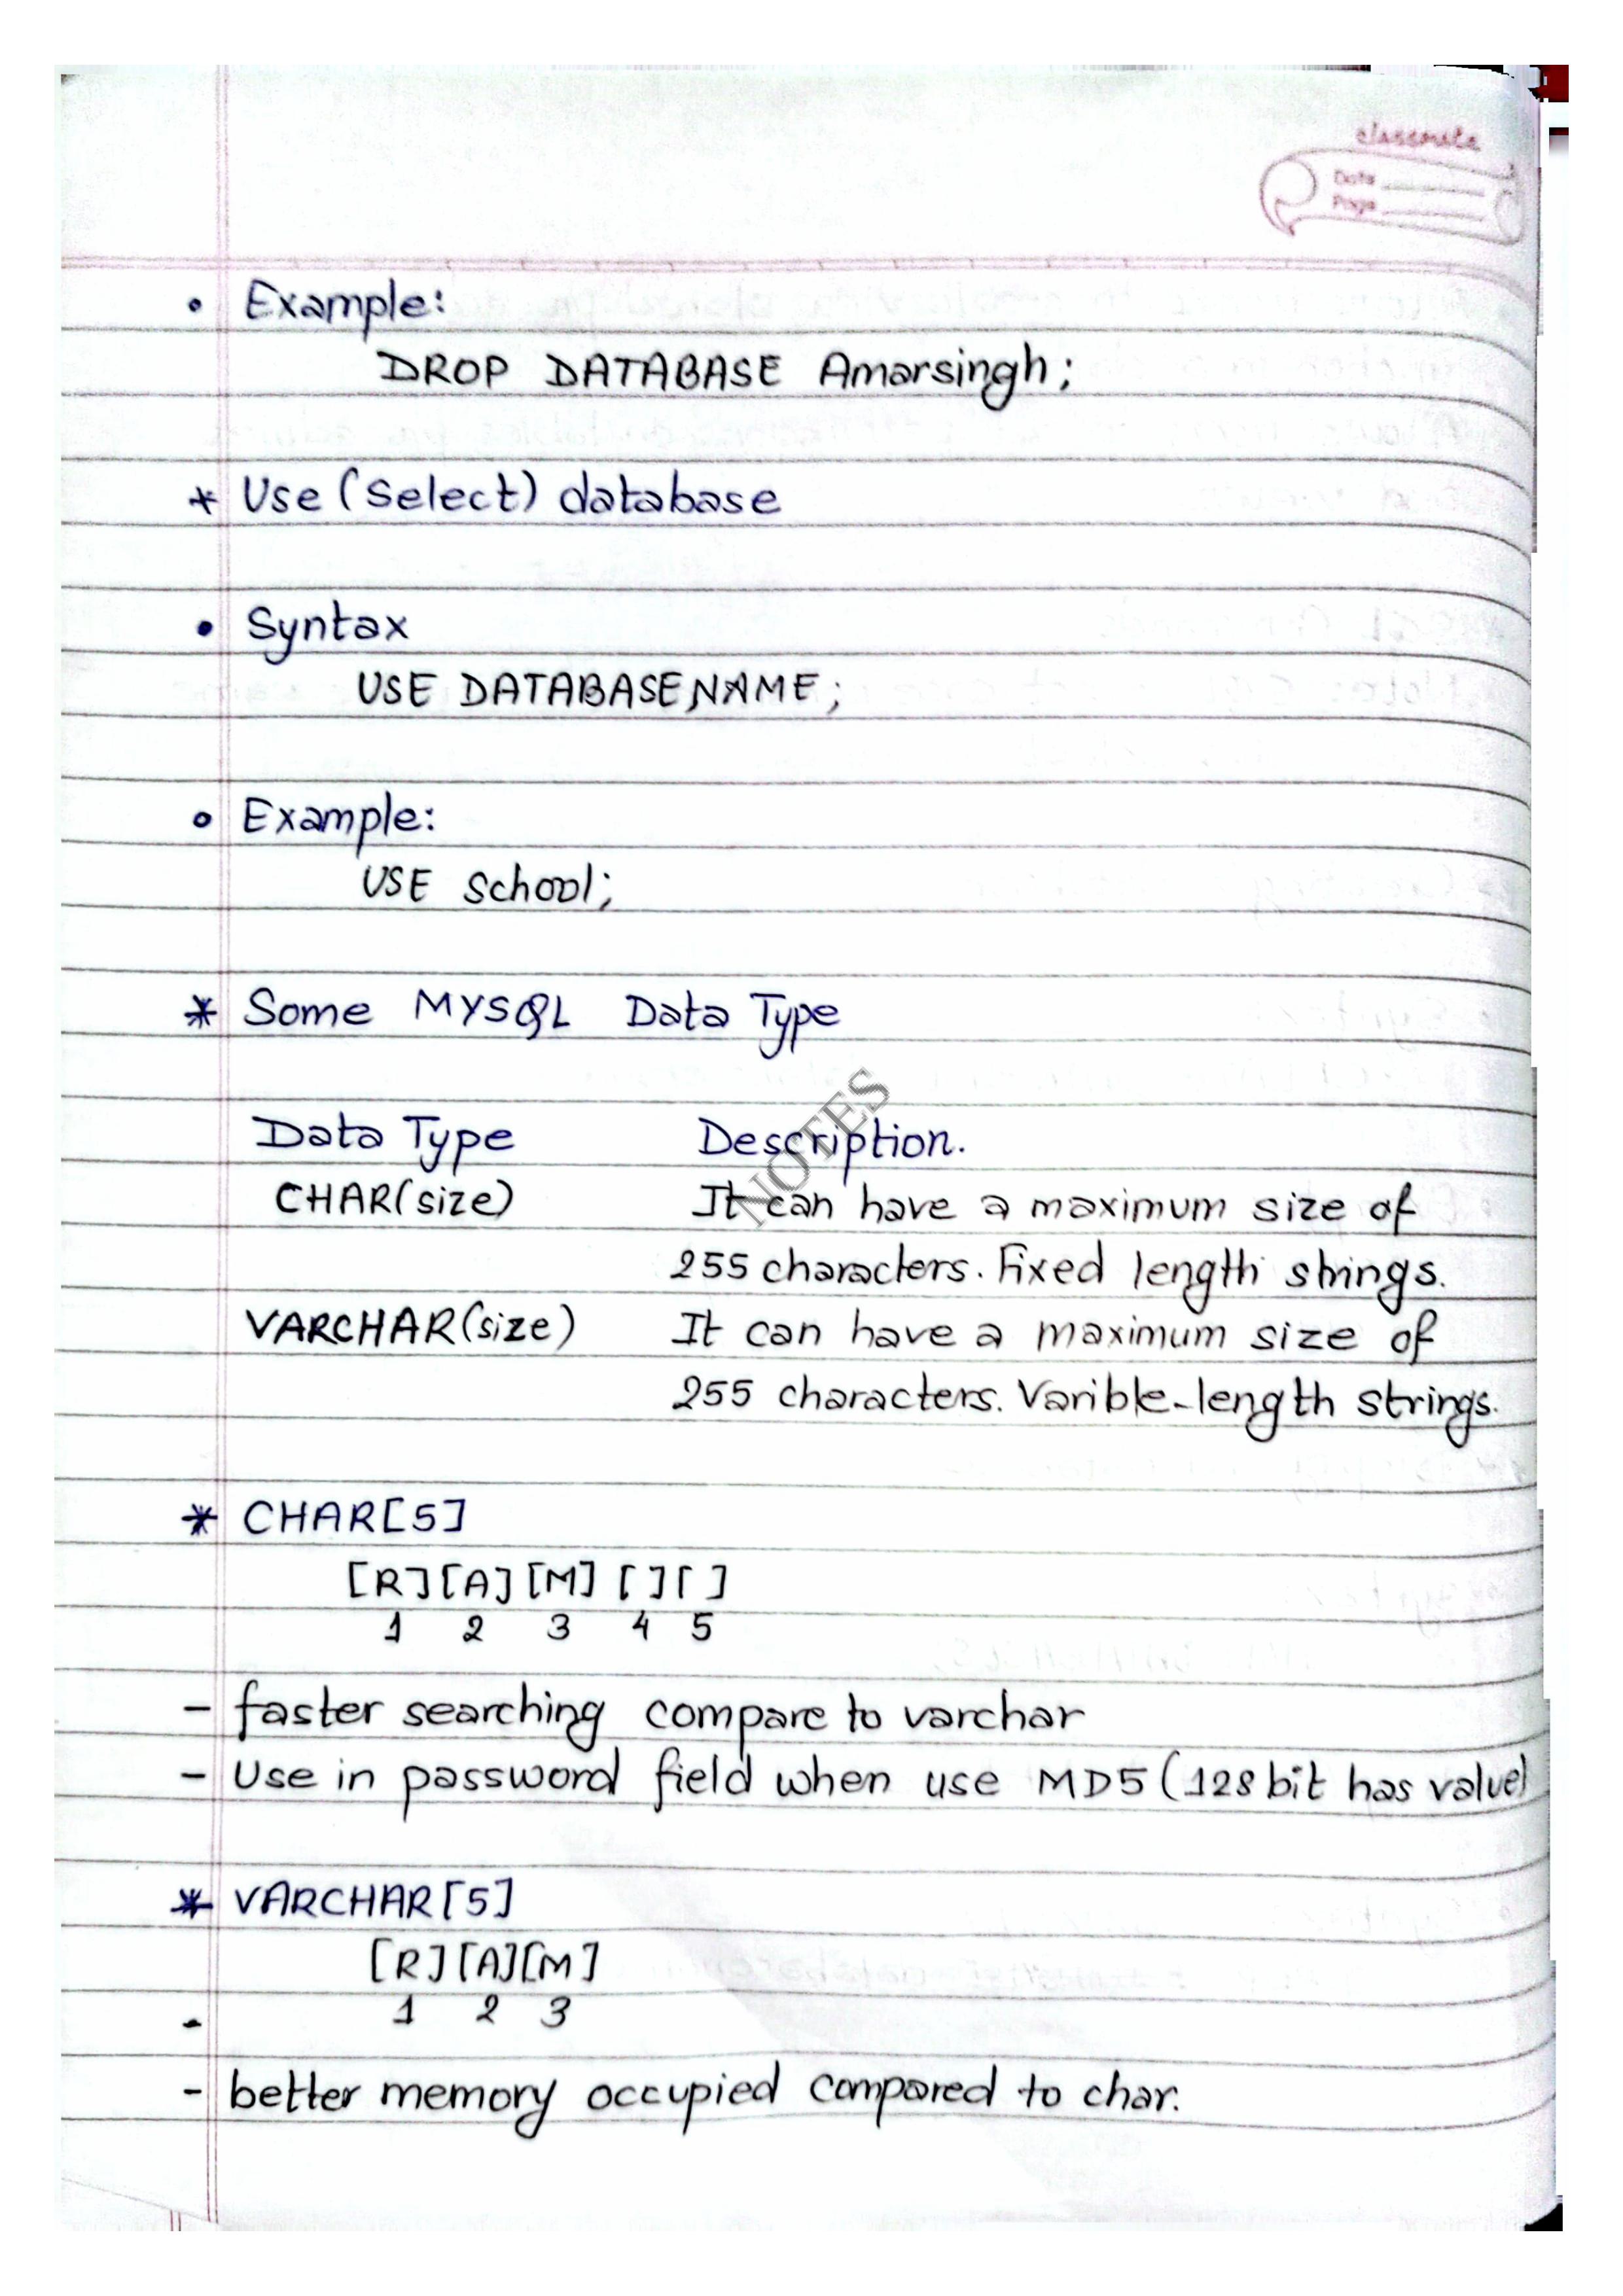 classmate
Date
Page
• Example:
DROP DATABASE Amarsingh;
* Use (Select) database
• Syntax
USE DATABASENAME;
• Example:
USE School;
* Some MYSQL Data Type
NOTES
Data Type Description.
CHAR(size) It can have a maximum size of
255 characters. Fixed length strings.
VARCHAR(size) It can have a maximum size of
255 characters. Varible-length strings.
* CHAR[5]
[R][A][M][ ][ ]
1 2 3 4 5
- faster searching compare to varchar
- Use in password field when use MD5 (128 bit has value)
* VARCHAR[5]
[R][A][M]
- 1 2 3
- better memory occupied compared to char.